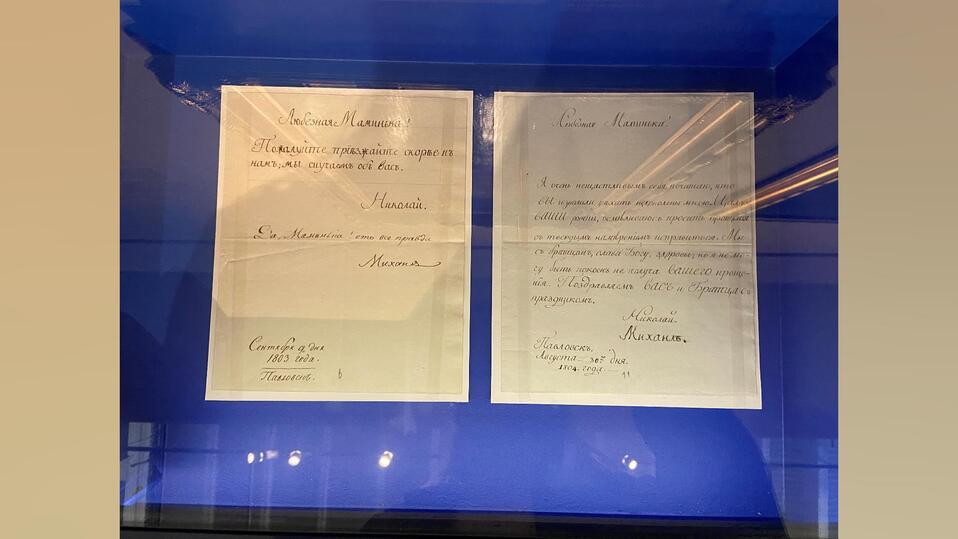 Любезная Маминька!
Пожалуйте приезжайте скорѣе къ
намъ; мы скучаемъ объ васъ.
Николай.
Да Маминька! ето все правда
Михаилъ
Сентября 9 дня
1803 года.
Павловскъ.
6
Любезная Маминька!
Я очень нещастливымъ себя почитаю, что
ВЫ изволили уѣхать недовольны мною
ВАШИ ручки, осмѣливаюсь просить прощенія
съ твердымъ намѣреніемъ исправиться. Мы
съ братцамъ, слава Богу, здоровы; но я не мо-
гу быть покоенъ не получа ВАШЕГО проще-
нія. Поздравляемъ ВАСЪ и Братцасъ
праздникомъ.
Николай.
Михаилъ.
Павловскъ,
Августа 30го дня.
1804. года.
11